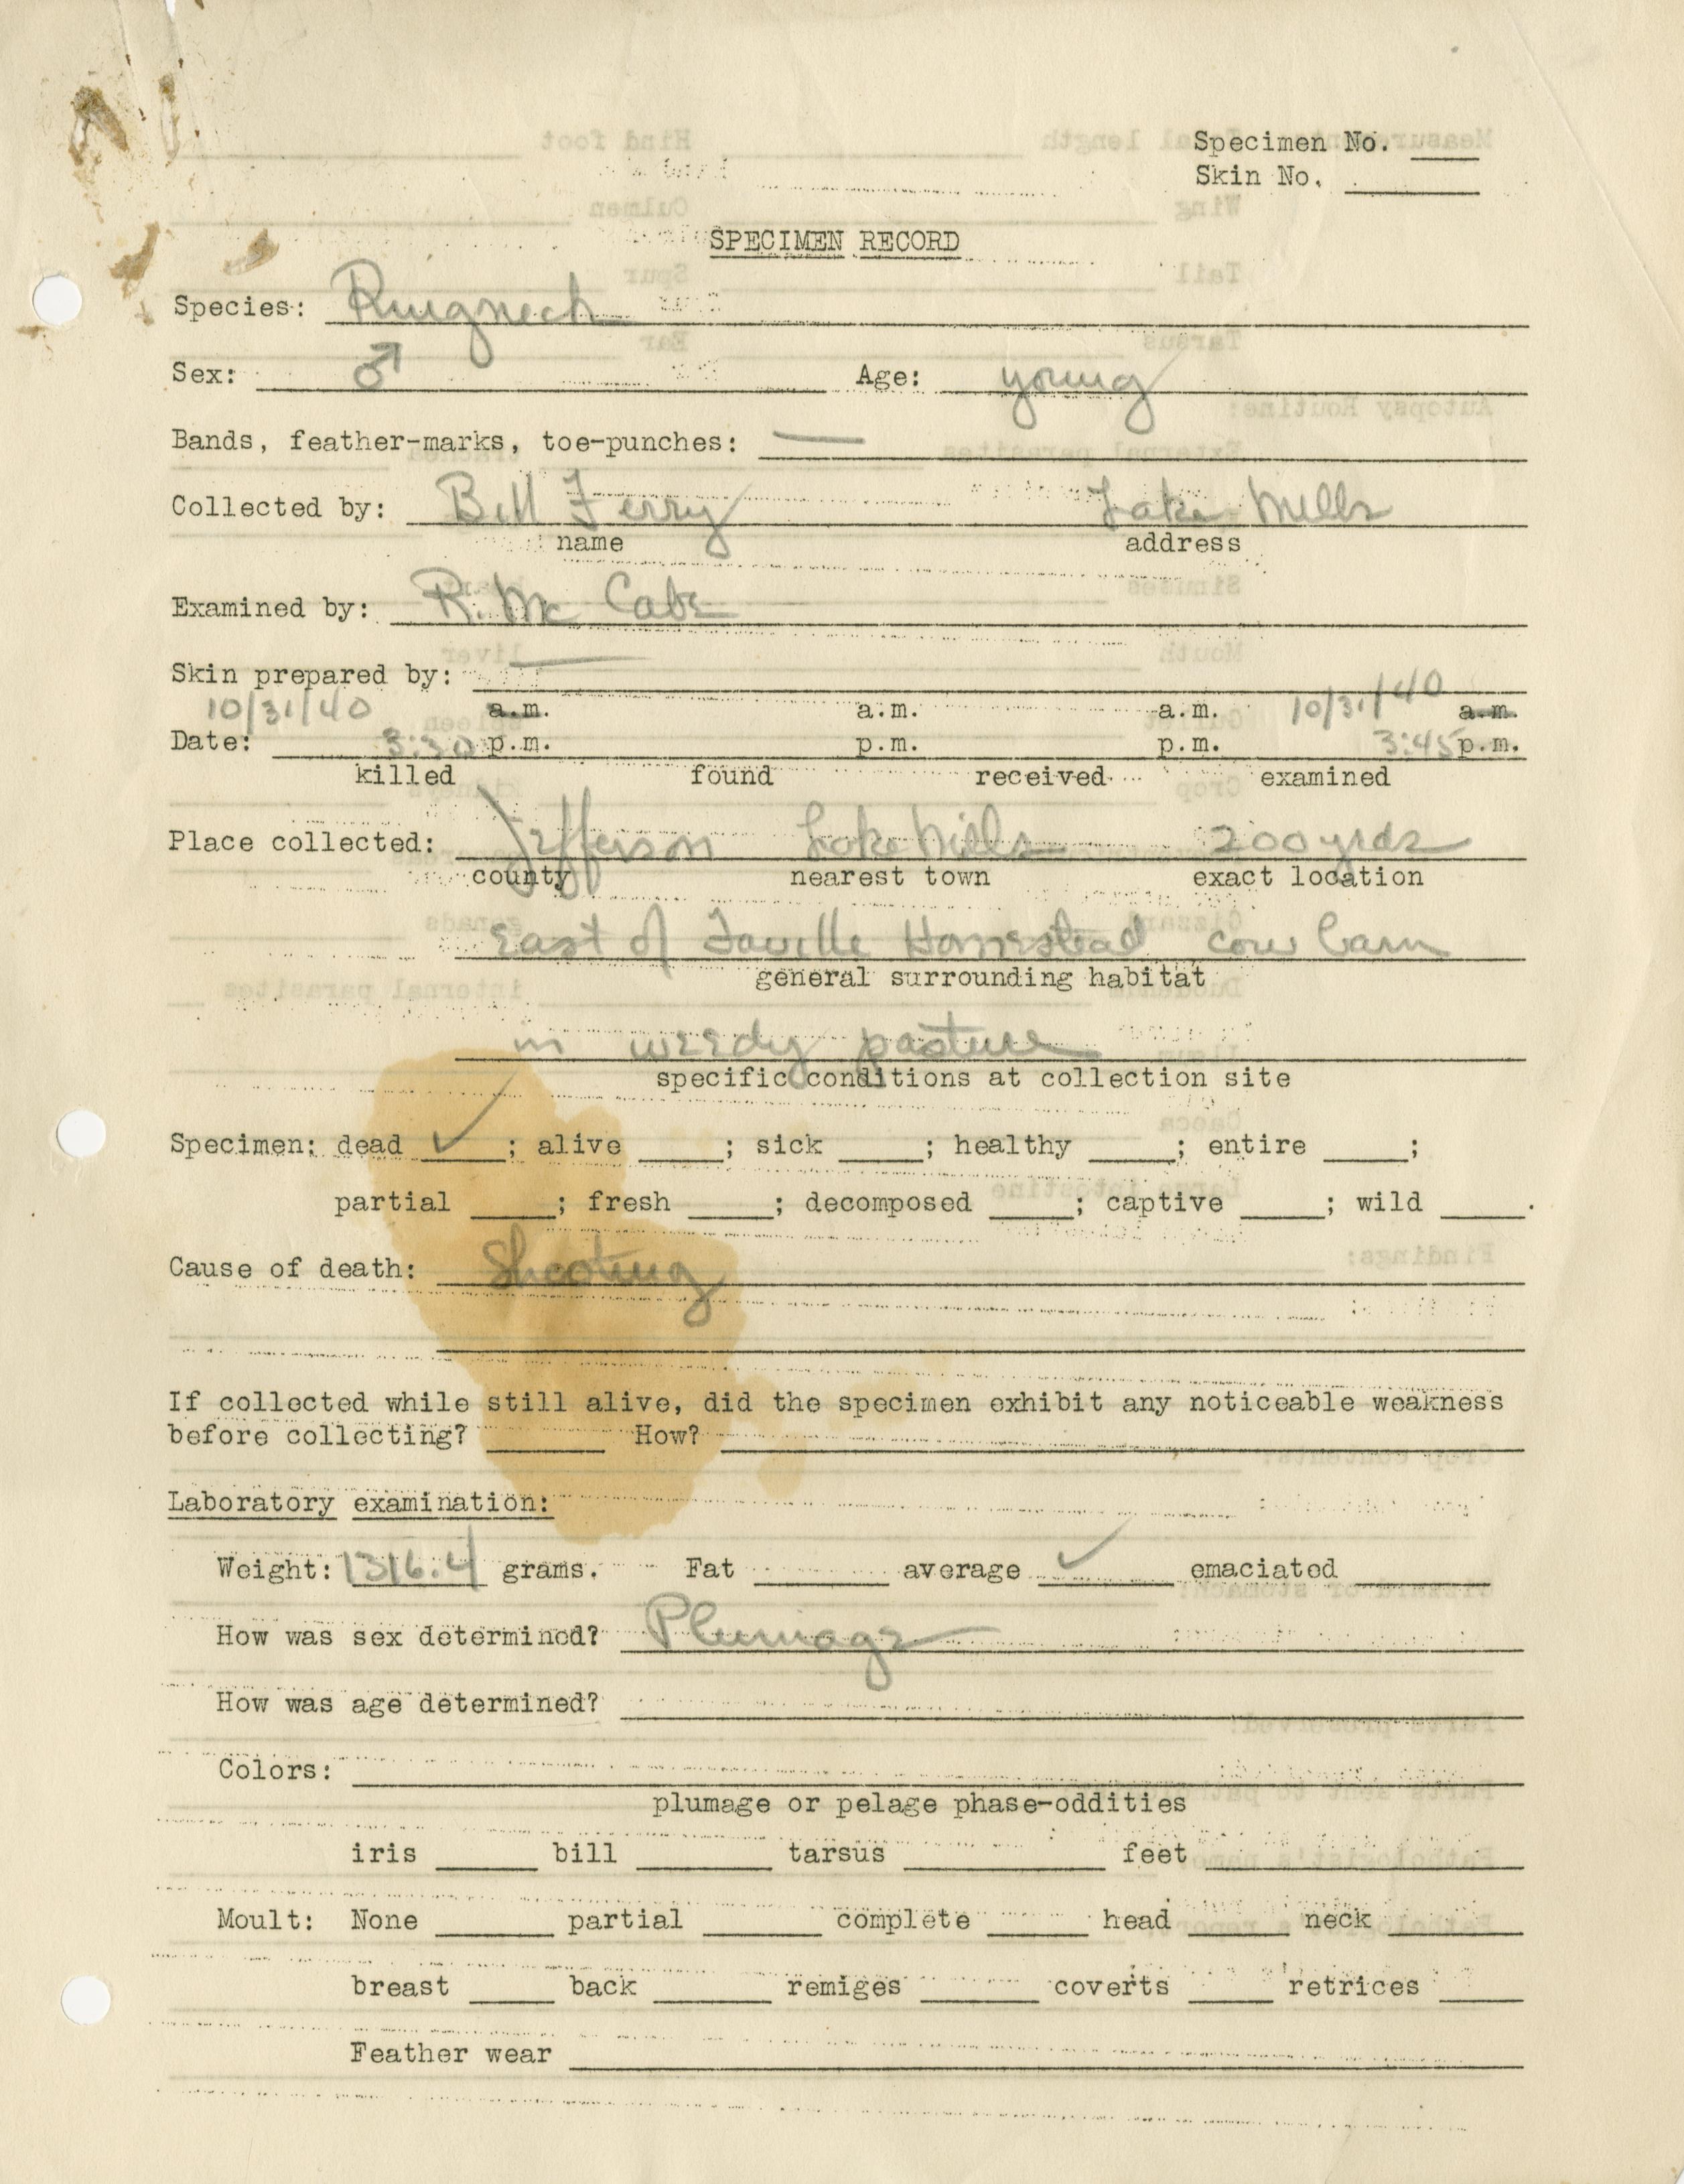 Specimen No.
Skin No.
SPECIMEN RECORD
Species: Ringneck
Sex: ♂ Age: young
Bands, feather-marks, toe-punches: —
Collected by: Bill Ferry Lake Mills
name address
Examined by: R. Mc Cabe
Skin prepared by: —
10/31/40 a.m. a.m. a.m. 10/31/40 a.m.
Date: 3:30 p.m. p.m. p.m. 3:45 p.m.
killed found received examined
Place collected: Jefferson Lake Mills 200 yrds
county nearest town exact location
east of Faville Homestead cow barn
general surrounding habitat
in weedy pasture
specific conditions at collection site
Specimen: dead ✓; alive ; sick ; healthy ; entire ;
partial ; fresh ; decomposed ; captive ; wild .
Cause of death: Shooting
If collected while still alive, did the specimen exhibit any noticeable weakness
before collecting? How?
Laboratory examination:
Weight: 1316.4 grams. Fat average ✓ emaciated
How was sex determined? Plumage
How was age determined?
Colors:
plumage or pelage phase-oddities
iris bill tarsus feet
Moult: None partial complete head neck
breast back remiges coverts retrices
Feather wear